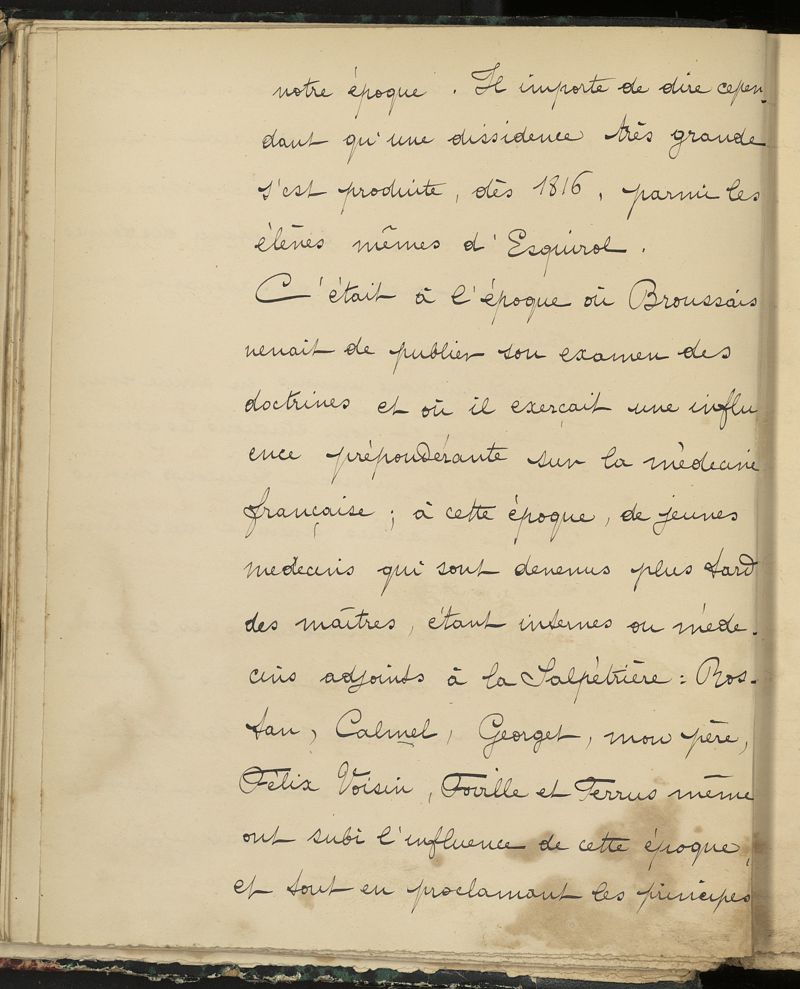 notre époque. Il importe de dire cepen-
dant qu'une dissidence très grande
s'est produite, dès 1816, parmi les
élèves mêmes d'Esquirol.
C'était à l'époque où Broussais
venait de publier son examen des
doctrines et où il exerçait une influ
ence prépondérante sur la médecine
française ; à cette époque, de jeunes
medecins qui sont devenus plus tard
des maîtres, étant internes ou méde-
cins adjoints à la Salpétrière : Ros-
tan, Calmel, Georget, mon père,
Félix Voisin, Foville et Ferrus même
ont subi l'influence de cette époque,
et tout en proclamant les principes